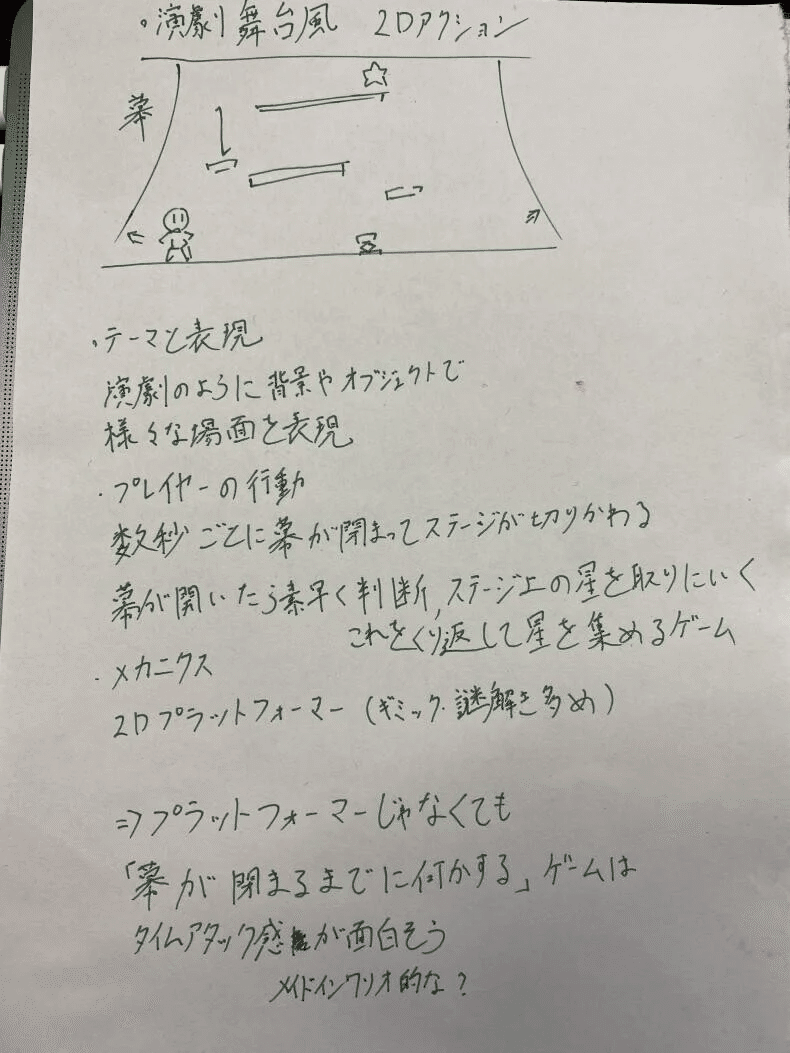 ・演劇舞台風 2Dアクション
幕
・テーマと表現
演劇のように背景やオブジェクトで
様々な場面を表現
・プレイヤーの行動
数秒ごとに幕が閉まってステージが切りかわる
幕が開いたら素早く判断,ステージ上の星を取りにいく
これをくり返して星を集めるゲーム
・メカニクス
2Dプラットフォーマー(ギミック・謎解き多め)
⇒プラットフォーマーじゃなくても
「幕が閉まるまでに何かする」ゲームは
タイムアタック感が面白そう
メイドインワリオ的な?